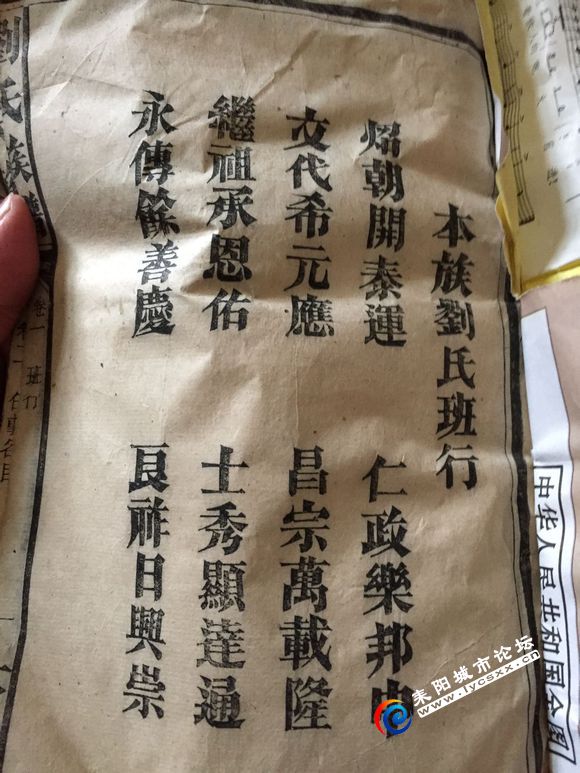 本族劉氏班行
朝開泰運 仁政樂邦
文代希元應 昌宗萬載隆
繼祖承恩佑 士秀顯達通
永傳餘善慶 良祥日興崇
劉氏族譜
卷一
班行
中华人民共和国全图
耒阳城市论坛
www.lycsxx.cn